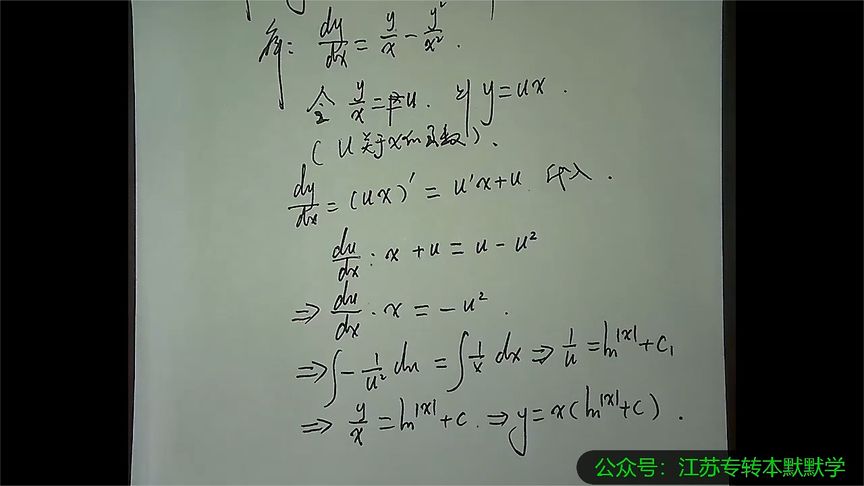 解: dy/dx = y/x - y²/x².
令 y/x = u. 则 y = ux.
(u关于x的函数).
dy/dx = (ux)' = u'x + u 代入.
du/dx · x + u = u - u²
⇒ du/dx · x = -u².
⇒ ∫ -1/u² du = ∫ 1/x dx ⇒ 1/u = ln|x| + C₁
⇒ y/x = ln|x| + C. ⇒ y = x(ln|x| + C).
公众号：江苏专转本默默学